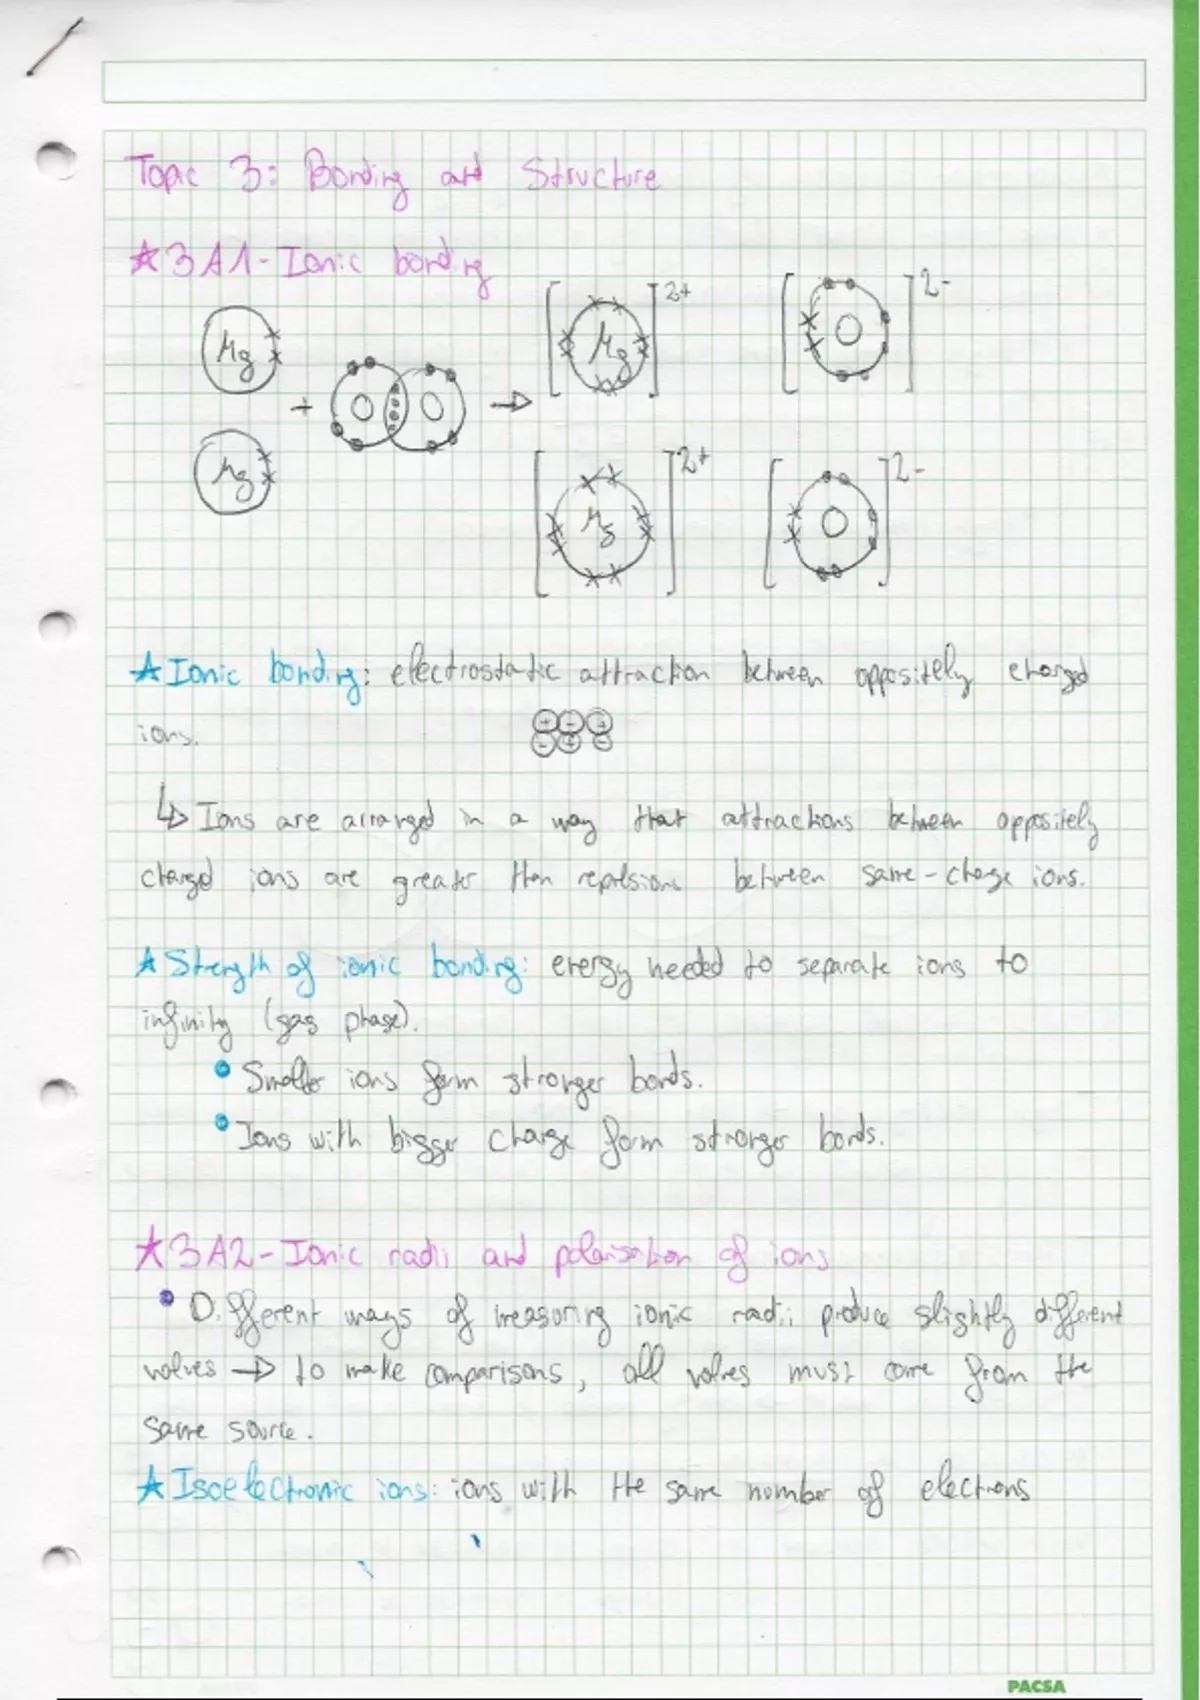 Topic 3: Bonding and Structure
★3A1-Ionic bonding
Mg
Mg
+
O O
→
[Mg]2+
[O]2-
[Mg]2+
[O]2-
★Ionic bonding: electrostatic attraction between oppositely charged
ions.
+ - +
- + -
↳ Ions are arranged in a way that attractions between oppositely
charged ions are greater than repulsions between same-charge ions.
★Strength of ionic bonding: energy needed to separate ions to
infinity (gas phase).
• Smaller ions form stronger bonds.
• Ions with bigger charge form stronger bonds.
★3A2-Ionic radii and polarisation of ions
• Different ways of measuring ionic radii produce slightly different
values → to make comparisons, all values must come from the
same source.
★Isoelectronic ions: ions with the same number of electrons
PACSA